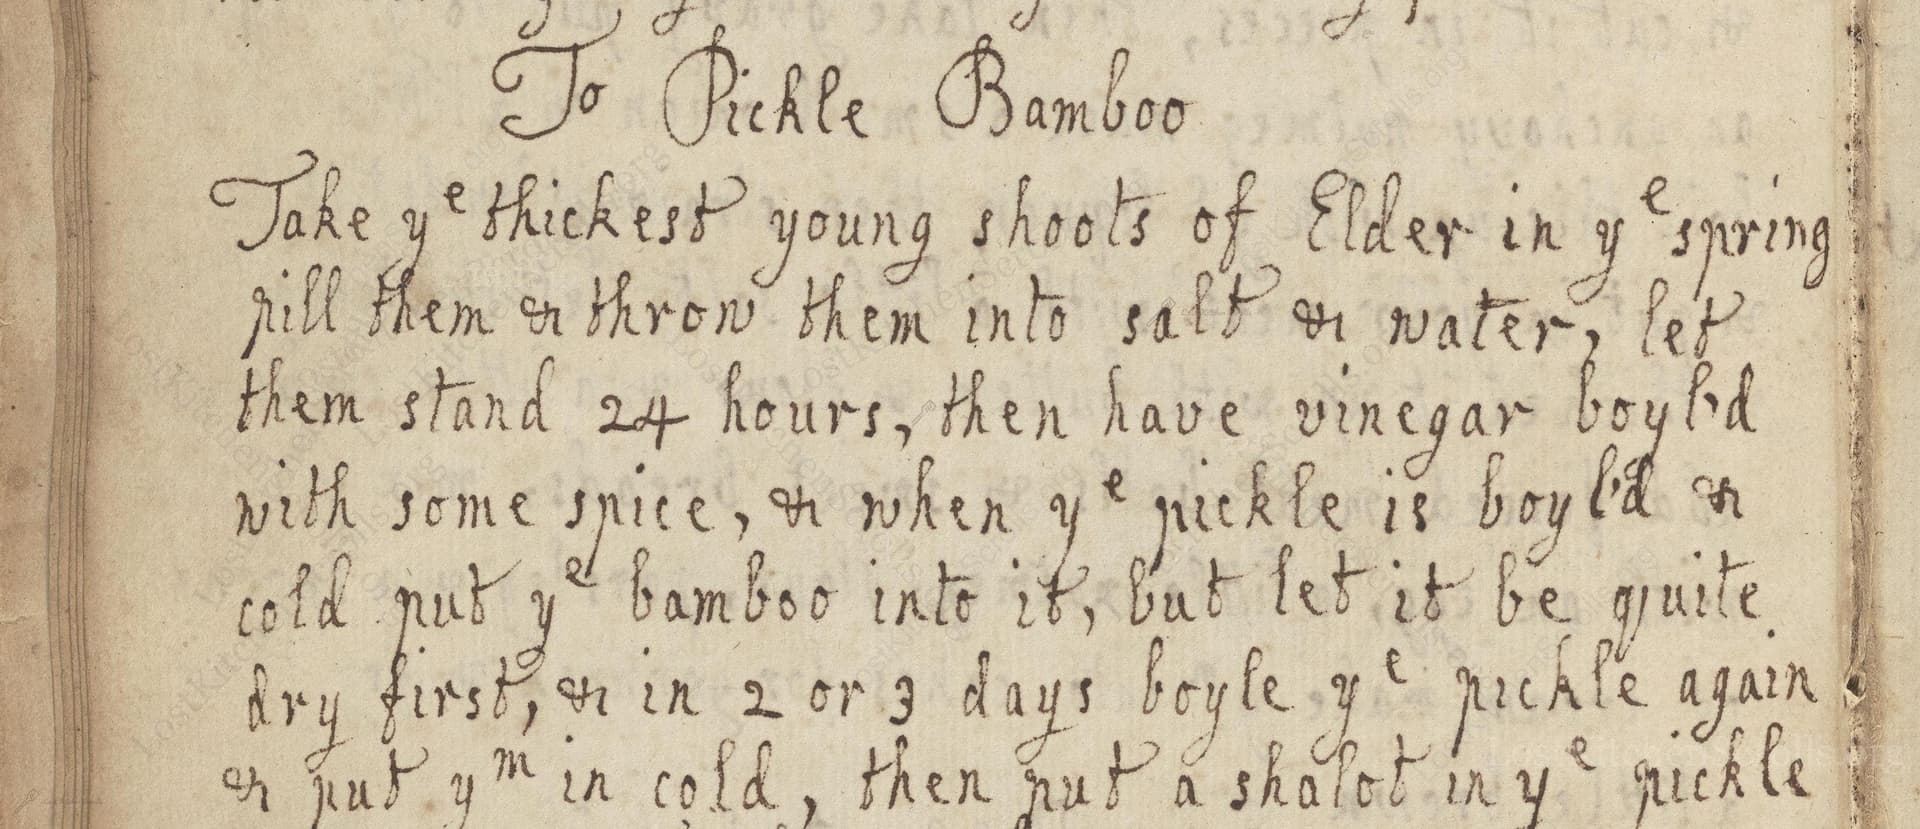 To Pickle Bamboo
Take yᵉ thickest young shoots of Elder in yᵉ spring
pill them & throw them into salt & water, let
them stand 24 hours, then have vinegar boyl'd
with some spice, & when yᵉ pickle is boyl'd &
cold put yᵉ bamboo into it, but let it be quite
dry first, & in 2 or 3 days boyle yᵉ pickle again
& put yᵐ in cold, then put a shalot in yᵉ pickle